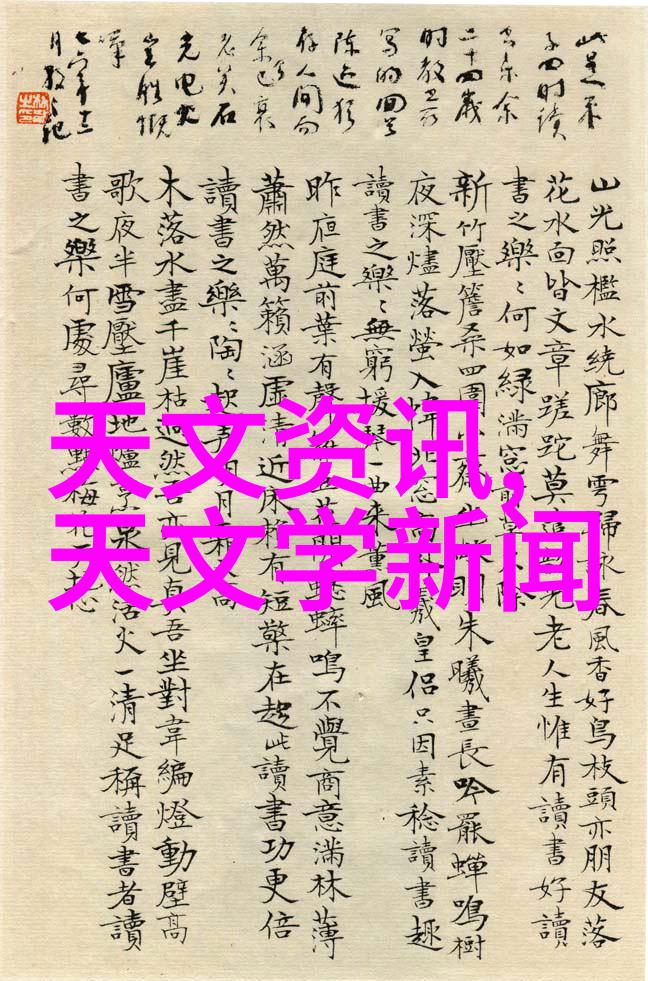 此是朱
子四时读
书乐余
二十四歲
时教
写的回
陈迹犹
存人间而
余已衰
老矣石
光电火
岂胜慨
七六年十二
月
山光照檻水繞廊舞雩歸詠春風香好鳥枝頭亦朋友落
花水面皆文章蹉跎莫遣韶光老人生惟有讀書好讀
書之樂〻何如綠滿窓前草不除
新竹壓簷桑四圍小齋幽敞明朱曦晝長吟罷蟬鳴樹
夜深燼落螢入幃北窓高臥羲皇侶只因素稔讀書趣
讀書之樂〻無窮援琴一曲來薰風
昨夜庭前葉有聲籬豆花開蟋蟀鳴不覺商意滿林薄
蕭然萬籟涵虛清近床賴有短檠在趁此讀書功更倍
讀書之樂〻陶〻起弄明月霜天高
木落水盡千崖枯迥然吾亦見真吾坐對韋編燈動壁高
歌夜半雪壓廬地爐烹泉然活火一清足稱讀書者讀
書之樂何處尋數點梅花天地心
天文资讯,
天文学新闻